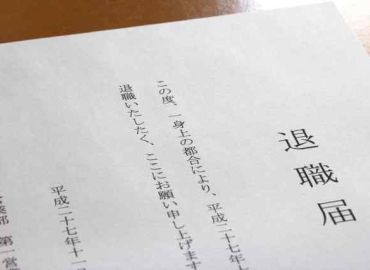 退職届
この度、一身上の都合により、平成二十七年
退職いたしたく、ここにお願い申し上げます
平成二十七年十
営業部 第一営